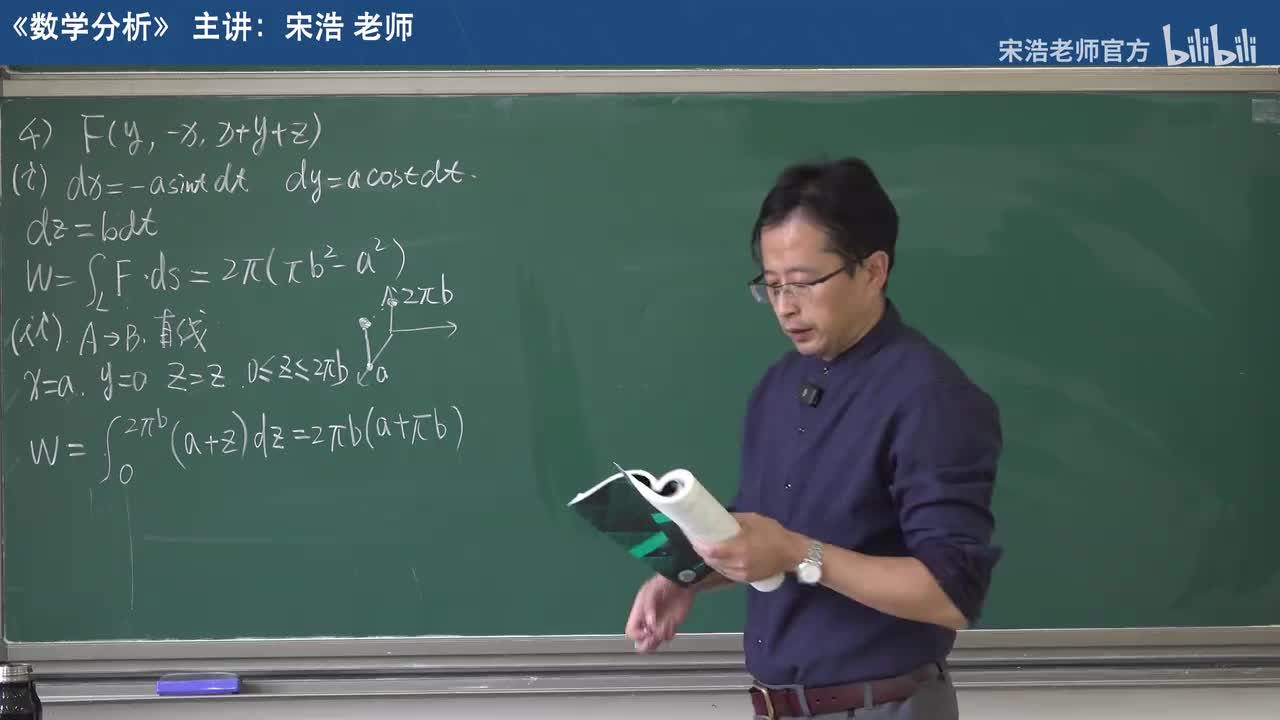 《数学分析》 主讲：宋浩 老师
宋浩老师官方 bilibili
4) F(y, -x, x+y+z)
(i) dx=-asint dt dy=acost dt.
dz=bdt
W=∫_L F·ds=2π(πb²-a²)
2πb
(ii) A→B. 直线
x=a. y=0 z=z. 0≤z≤2πb
a
W=∫_0^{2πb}(a+z)dz=2πb(a+πb)